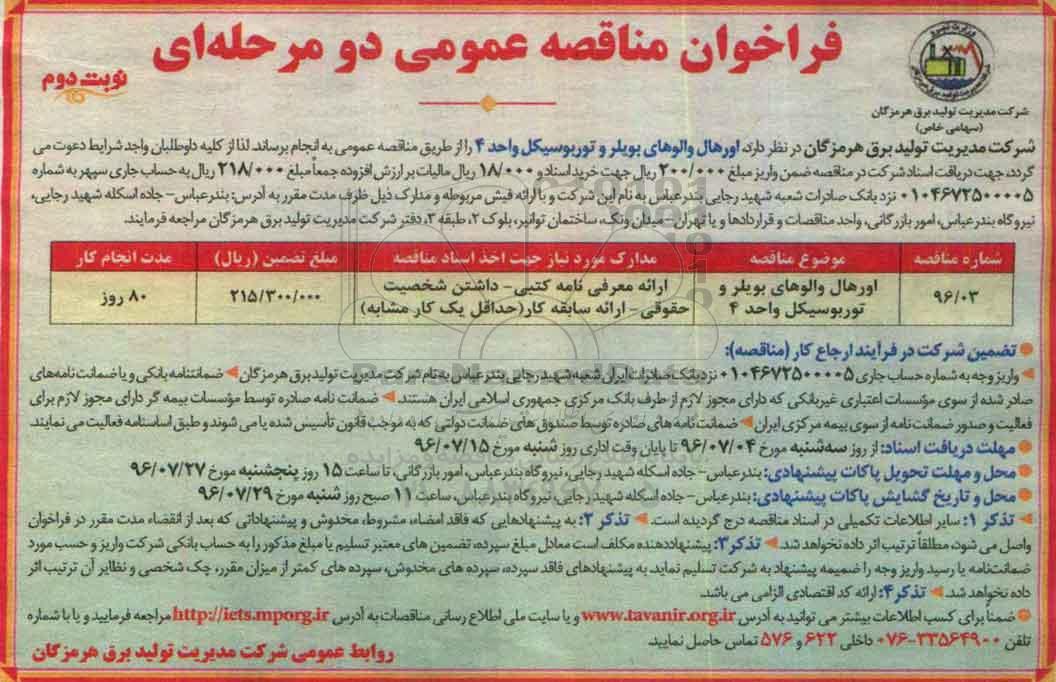 فراخوان مناقصه عمومی دو مرحله‌ای
نوبت دوم
شرکت مدیریت تولید برق هرمزگان
(سهامی خاص)
شرکت مدیریت تولید برق هرمزگان در نظر دارد، اورهال والوهای بویلر و توربوسیکل واحد ۴ را از طریق مناقصه عمومی به انجام برساند. لذا از کلیه داوطلبان واجد شرایط دعوت می
گردد، جهت دریافت اسناد شرکت در مناقصه ضمن واریز مبلغ ۲۰۰/۰۰۰ ریال جهت خرید اسناد و ۱۸/۰۰۰ ریال مالیات بر ارزش افزوده جمعاً مبلغ ۲۱۸/۰۰۰ ریال به حساب جاری سپهر به شماره
۰۱۰۴۶۷۲۵۰۰۰۰۵ نزد بانک صادرات شعبه شهید رجایی بندرعباس به نام این شرکت و با ارائه فیش مربوطه و مدارک ذیل ظرف مدت مقرر به آدرس: بندرعباس- جاده اسکله شهید رجایی،
نیروگاه بندرعباس، امور بازرگانی، واحد مناقصات و قراردادها و یا تهران- میدان ونک، ساختمان توانیر، بلوک ۲، طبقه ۳، دفتر شرکت مدیریت تولید برق هرمزگان مراجعه فرمایند.
شماره مناقصه موضوع مناقصه مدارک مورد نیاز جهت اخذ اسناد مناقصه مبلغ تضمین (ریال) مدت انجام کار
۹۶/۰۳ اورهال والوهای بویلر و توربوسیکل واحد ۴ ارائه معرفی نامه کتبی- داشتن شخصیت حقوقی- ارائه سابقه کار(حداقل یک کار مشابه) ۲۱۵/۳۰۰/۰۰۰ ۸۰ روز
تضمین شرکت در فرآیند ارجاع کار (مناقصه):
واریز وجه به شماره حساب جاری ۰۱۰۴۶۷۲۵۰۰۰۰۵ نزد بانک صادرات ایران شعبه شهید رجایی بندرعباس به نام شرکت مدیریت تولید برق هرمزگان ◄ ضمانتنامه بانکی و یا ضمانت نامه‌های
صادر شده از سوی مؤسسات اعتباری غیربانکی که دارای مجوز لازم از طرف بانک مرکزی جمهوری اسلامی ایران هستند. ◄ ضمانت نامه صادره توسط مؤسسات بیمه گر دارای مجوز لازم برای
فعالیت و صدور ضمانت نامه از سوی بیمه مرکزی ایران ◄ ضمانت نامه های صادره توسط صندوق های ضمانت دولتی که به موجب قانون تأسیس شده یا می شوند و طبق اساسنامه فعالیت می نمایند.
مهلت دریافت اسناد: از روز سه‌شنبه مورخ ۹۶/۰۷/۰۴ تا پایان وقت اداری روز شنبه مورخ ۹۶/۰۷/۱۵
محل و مهلت تحویل پاکات پیشنهادی: بندرعباس- جاده اسکله شهید رجایی، نیروگاه بندرعباس، امور بازرگانی، تا ساعت ۱۵ روز پنجشنبه مورخ ۹۶/۰۷/۲۷
محل و تاریخ گشایش پاکات پیشنهادی: بندرعباس- جاده اسکله شهید رجایی، نیروگاه بندرعباس، ساعت ۱۱ صبح روز شنبه مورخ ۹۶/۰۷/۲۹
◄ تذکر ۱: سایر اطلاعات تکمیلی در اسناد مناقصه درج گردیده است. ◄ تذکر ۲: به پیشنهادهایی که فاقد امضاء، مشروط، مخدوش و پیشنهاداتی که بعد از انقضاء مدت مقرر در فراخوان
واصل می شود، مطلقاً ترتیب اثر داده نخواهد شد. ◄ تذکر ۳: پیشنهاددهنده مکلف است معادل مبلغ سپرده، تضمین های معتبر تسلیم یا مبلغ مذکور را به حساب بانکی شرکت واریز و حسب مورد
ضمانت‌نامه یا رسید واریز وجه را ضمیمه پیشنهاد به شرکت تسلیم نماید. به پیشنهادهای فاقد سپرده، سپرده های مخدوش، سپرده های کمتر از میزان مقرر، چک شخصی و نظایر آن ترتیب اثر
داده نخواهد شد. ◄ تذکر ۴: ارائه کد اقتصادی الزامی می باشد.
ضمناً برای کسب اطلاعات بیشتر می توانید به آدرس www.tavanir.org.ir و یا سایت ملی اطلاع رسانی مناقصات به آدرس http://iets.mporg.ir مراجعه فرمایید و یا با شماره
تلفن ۳۳۵۶۴۹۰۰-۰۷۶ داخلی ۶۲۲ و ۵۷۶ تماس حاصل نمایید.
روابط عمومی شرکت مدیریت تولید برق هرمزگان